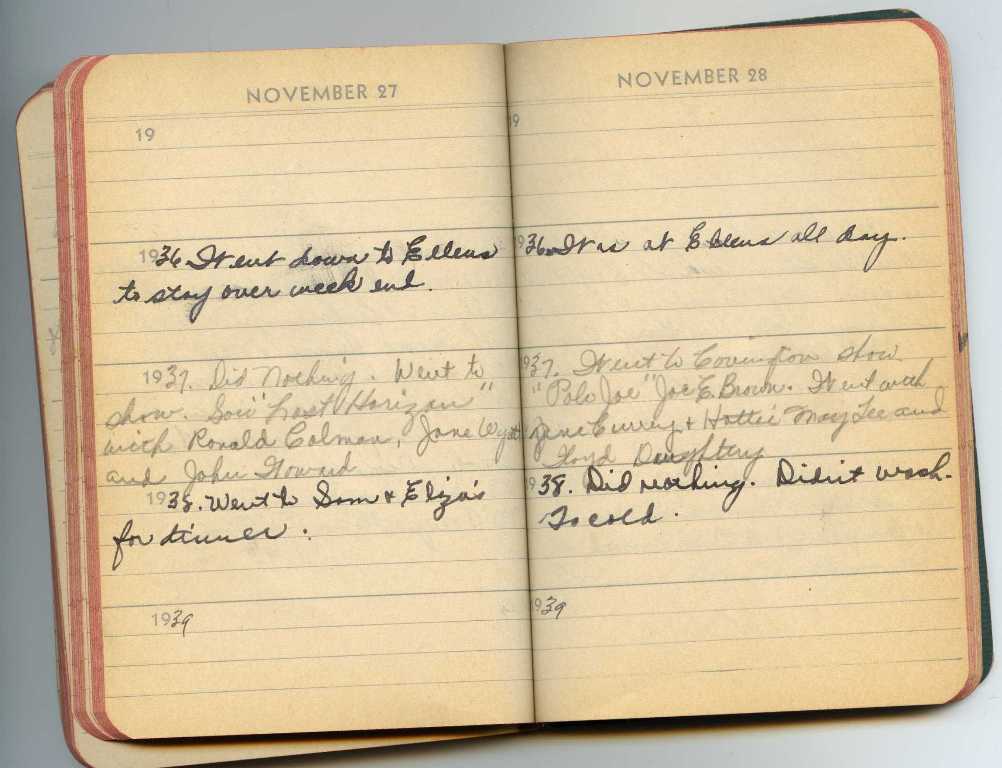 NOVEMBER 27
19
1936 Went down to Ellens
to stay over week end.
1937. Did Nothing. Went to
show. Saw "Lost Horizon"
with Ronald Colman, Jane Wyatt
and John Howard
1938. Went to Sam & Eliza's
for dinner.
1939
NOVEMBER 28
19
1936 Was at Ellens all day.
1937. Went to Covington show
"Polo Joe" Joe E. Brown. Went with
Jane Currey & Hattie May Lee and
Floyd
1938. Did nothing. Didn't wash.
To cold.
1939